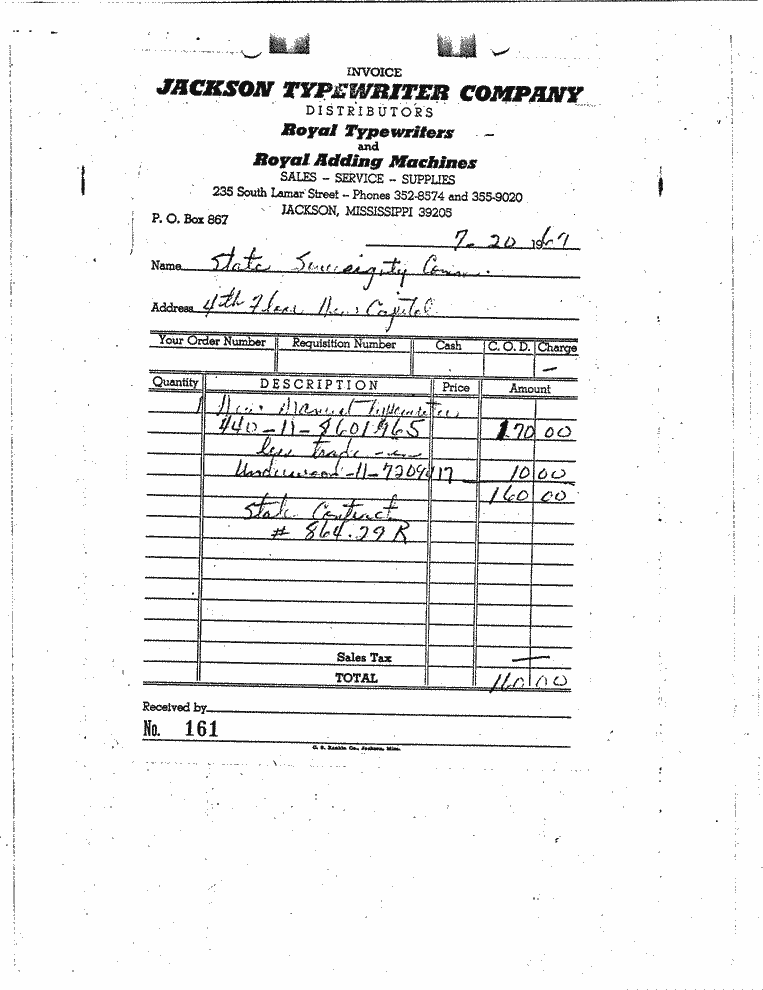 INVOICE
JACKSON TYPEWRITER COMPANY
DISTRIBUTORS
Royal Typewriters
and
Royal Adding Machines
SALES – SERVICE – SUPPLIES
235 South Lamar Street – Phones 352-8574 and 355-9020
JACKSON, MISSISSIPPI 39205
P. O. Box 867
7-20 1967
Name State Sovereignty Comm.
Address 4th Floor New Capitol
Your Order Number Requisition Number Cash C. O. D. Charge
Quantity DESCRIPTION Price Amount
1 New Manual Typewriter
440-11-8601965 170 00
less trade-in
Underwood-11-7209417 10 00
160 00
State Contract
# 864.29 R
Sales Tax —
TOTAL 160 00
Received by
No. 161